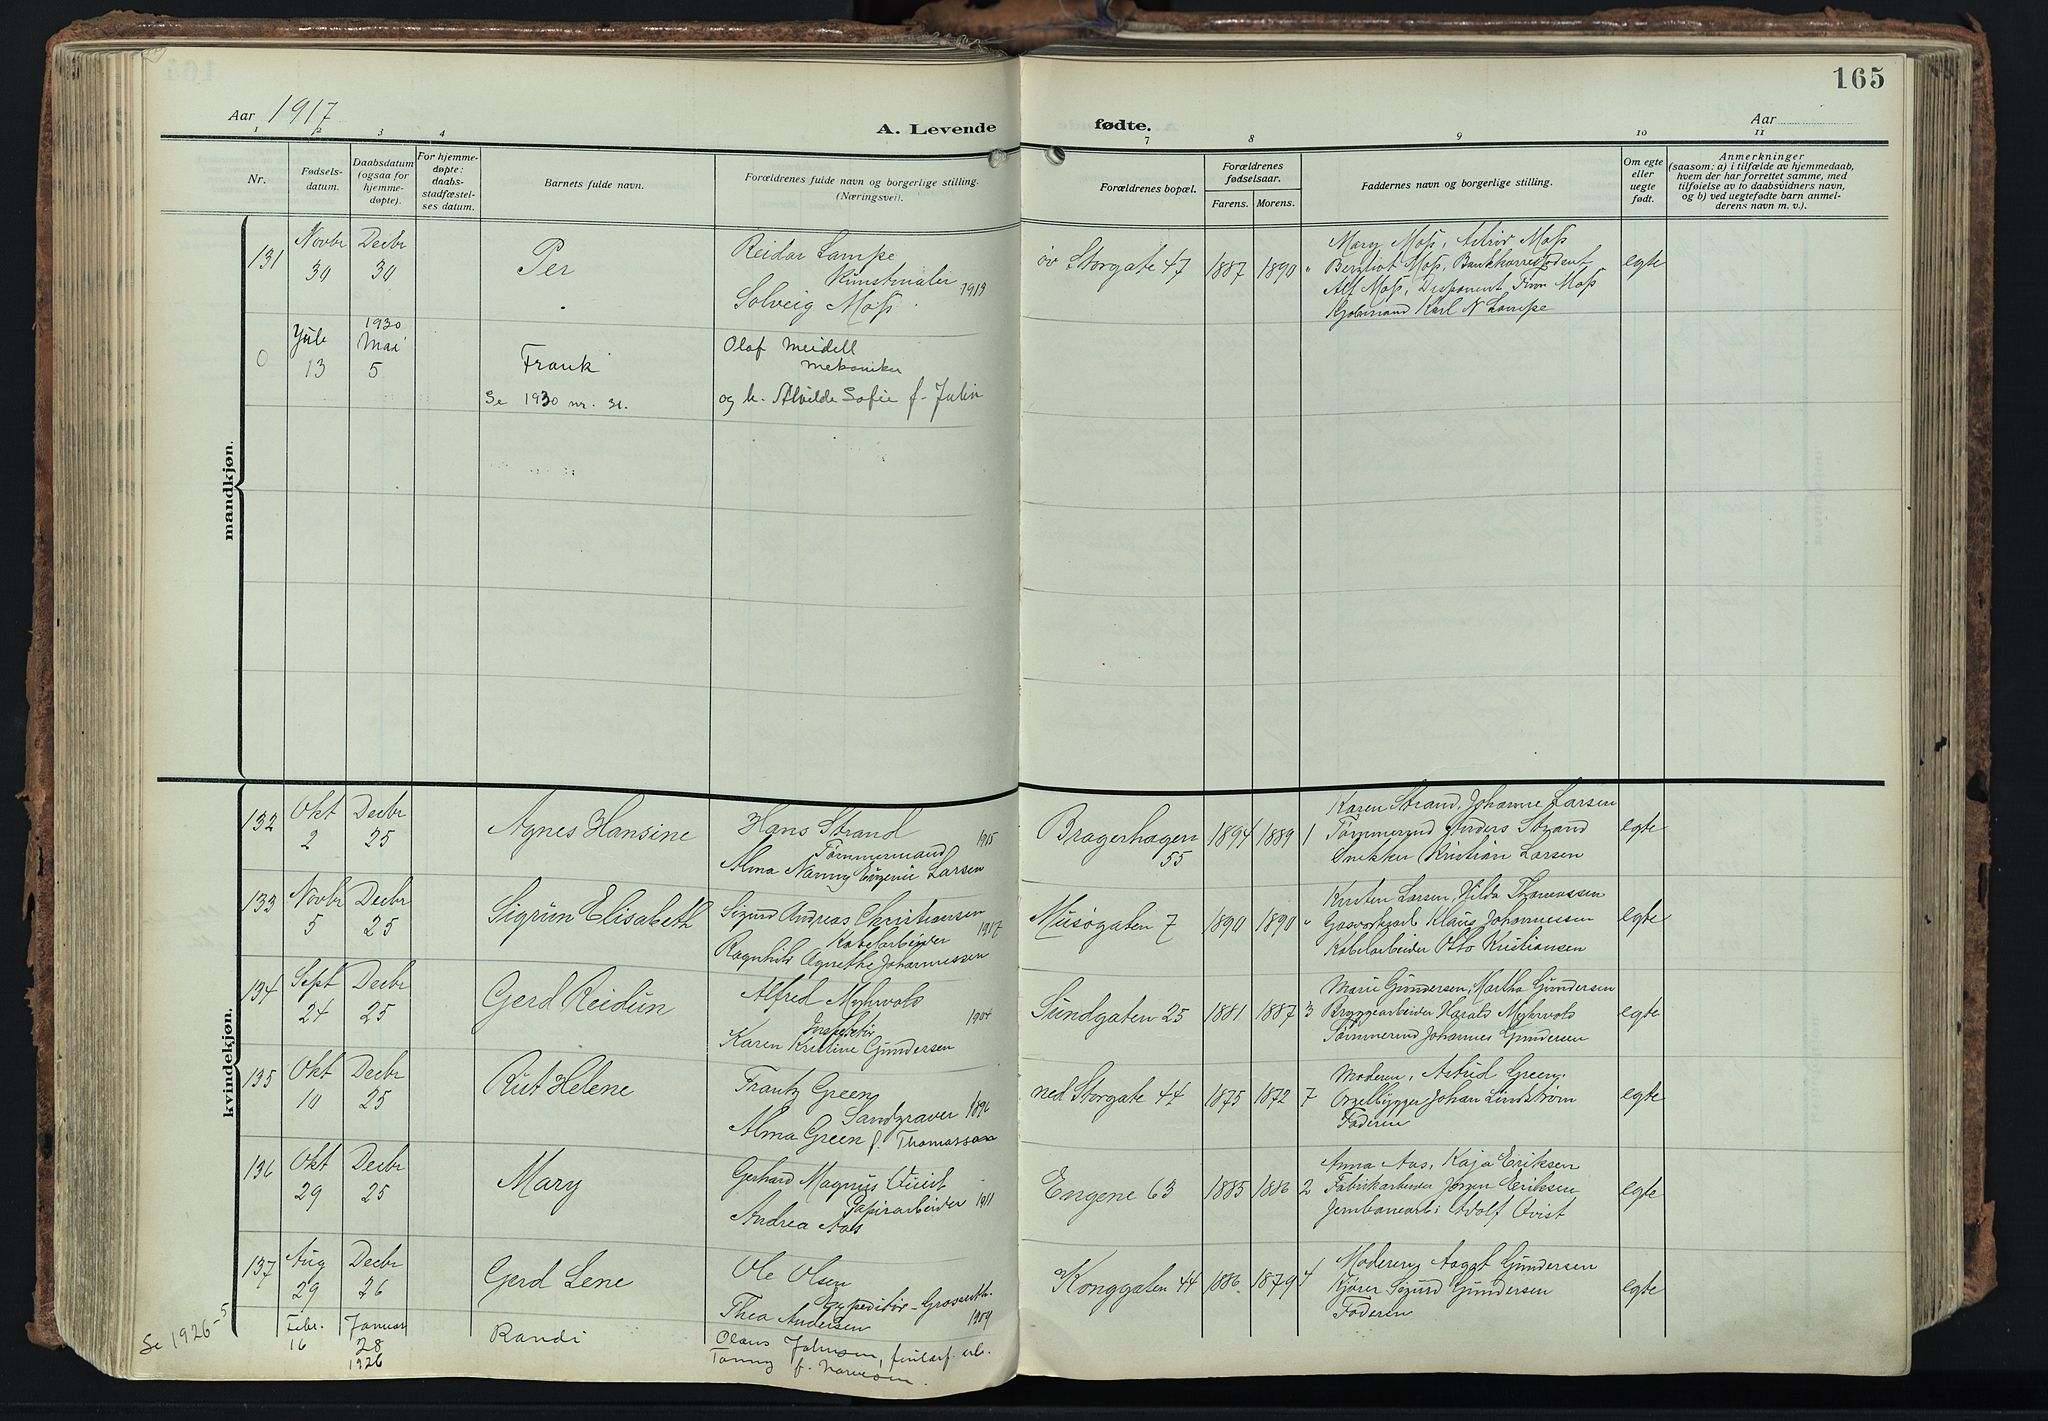 165
Aar 1917
A. Levende fødte.
Aar
1 2 3 4 7 8 9 10 11
Nr.
Fødsels-
datum.
Daabsdatum
(ogsaa for
hjemme-
døpte).
For hjemme-
døpte:
daabs-
stadfæstel-
ses datum.
Barnets fulde navn.
Forældrenes fulde navn og borgerlige stilling.
(Næringsvei).
Forældrenes bopæl.
Forældrenes
fødselsaar.
Farens. Morens.
Faddernes navn og borgerlige stilling.
Om egte
eller
uegte
født.
Anmerkninger
(saasom: a) i tilfælde av hjemmedaab,
hvem der har forrettet samme, med
tilføielse av to daabsvidners navn,
og b) ved uegtefødte barn anmel-
derens navn m. v.).
mandkjøn.
131
Novbr
30
Decbr
30
Per
Reidar Lampe
Kunstmaler
1913
Solveig Moss
øv Storgate 47
1887
1890
"
Mary Moss, Astrid Moss
Bergliot Moss, Bankkorrespodent
Alf Moss, Disponent Finn Moss
Karl N Lampe
egte
0
Jule
13
1930
Mai
5
Frank
Se 1930 nr. 31.
Olaf Meidell
mekaniker
og h. Alvilde Sofie f. Julin
kvindekjøn.
132
Okt
2
Decbr
25
Agnes Hansine
Hans Strand
Tømmermand
1915
Alma Nanny Eugenie Larsen
Bragerhagen
55
1894
1889
1
Karen Strand, Johanne Larsen
Tømmermd Anders Strand
Snekker Kristian Larsen
egte
133
Novbr
5
Decbr
25
Sigrun Elisabeth
Sigurd Andreas Christiansen
Kabelarbeider
1917
Ragnhild Agnethe Johannessen
Musøgaten 7
1890
1890
"
Kristen Larsen, Hilda Thomassen
Gasverkarb Klaus Johannessen
Kabelarbeider Otto Kristiansen
egte
134
Sept
24
Decbr
25
Gerd Reidun
Alfred Myhrvold
Inspektør
1904
Karen Kristine Gundersen
Sundgaten 25
1881
1887
3
Marie Gundersen, Martha Gundersen
Bryggearbeider Harald Myhrvold
Tømmermd Johannes Gundersen
egte
135
Okt
10
Decbr
25
Rut Helene
Frantz Green
Sandgraver
1896
Alma Green f. Thomassen
ned Storgate 44
1875
1872
7
Moderen, Astrid Green,
Orgelbygger Johan Lindstrøm
Faderen
egte
136
Okt
29
Decbr
25
Mary
Gerhard Magnus Qvist
Papirarbeider
1911
Andrea Aas
Engene 63
1885
1886
2
Anna Aas, Kaja Eriksen
Fabrikarbeider Jørgen Eriksen
Jernbanearb: Adolf Qvist
egte
137
Aug
29
Decbr
26
Gerd Lene
Ole Olsen
Expeditør - Grosserth.
1909
Thea Andersen
Konggaten 44
1886
1879
4
Moderen, Aagot Gundersen
Kjører Sigurd Gundersen
Faderen
egte
Se 1926-5
Febr.
16
Januar
28
1926
Randi
Olaus Johnsen, finlarf. arb.
Tonny f. Narvesen.